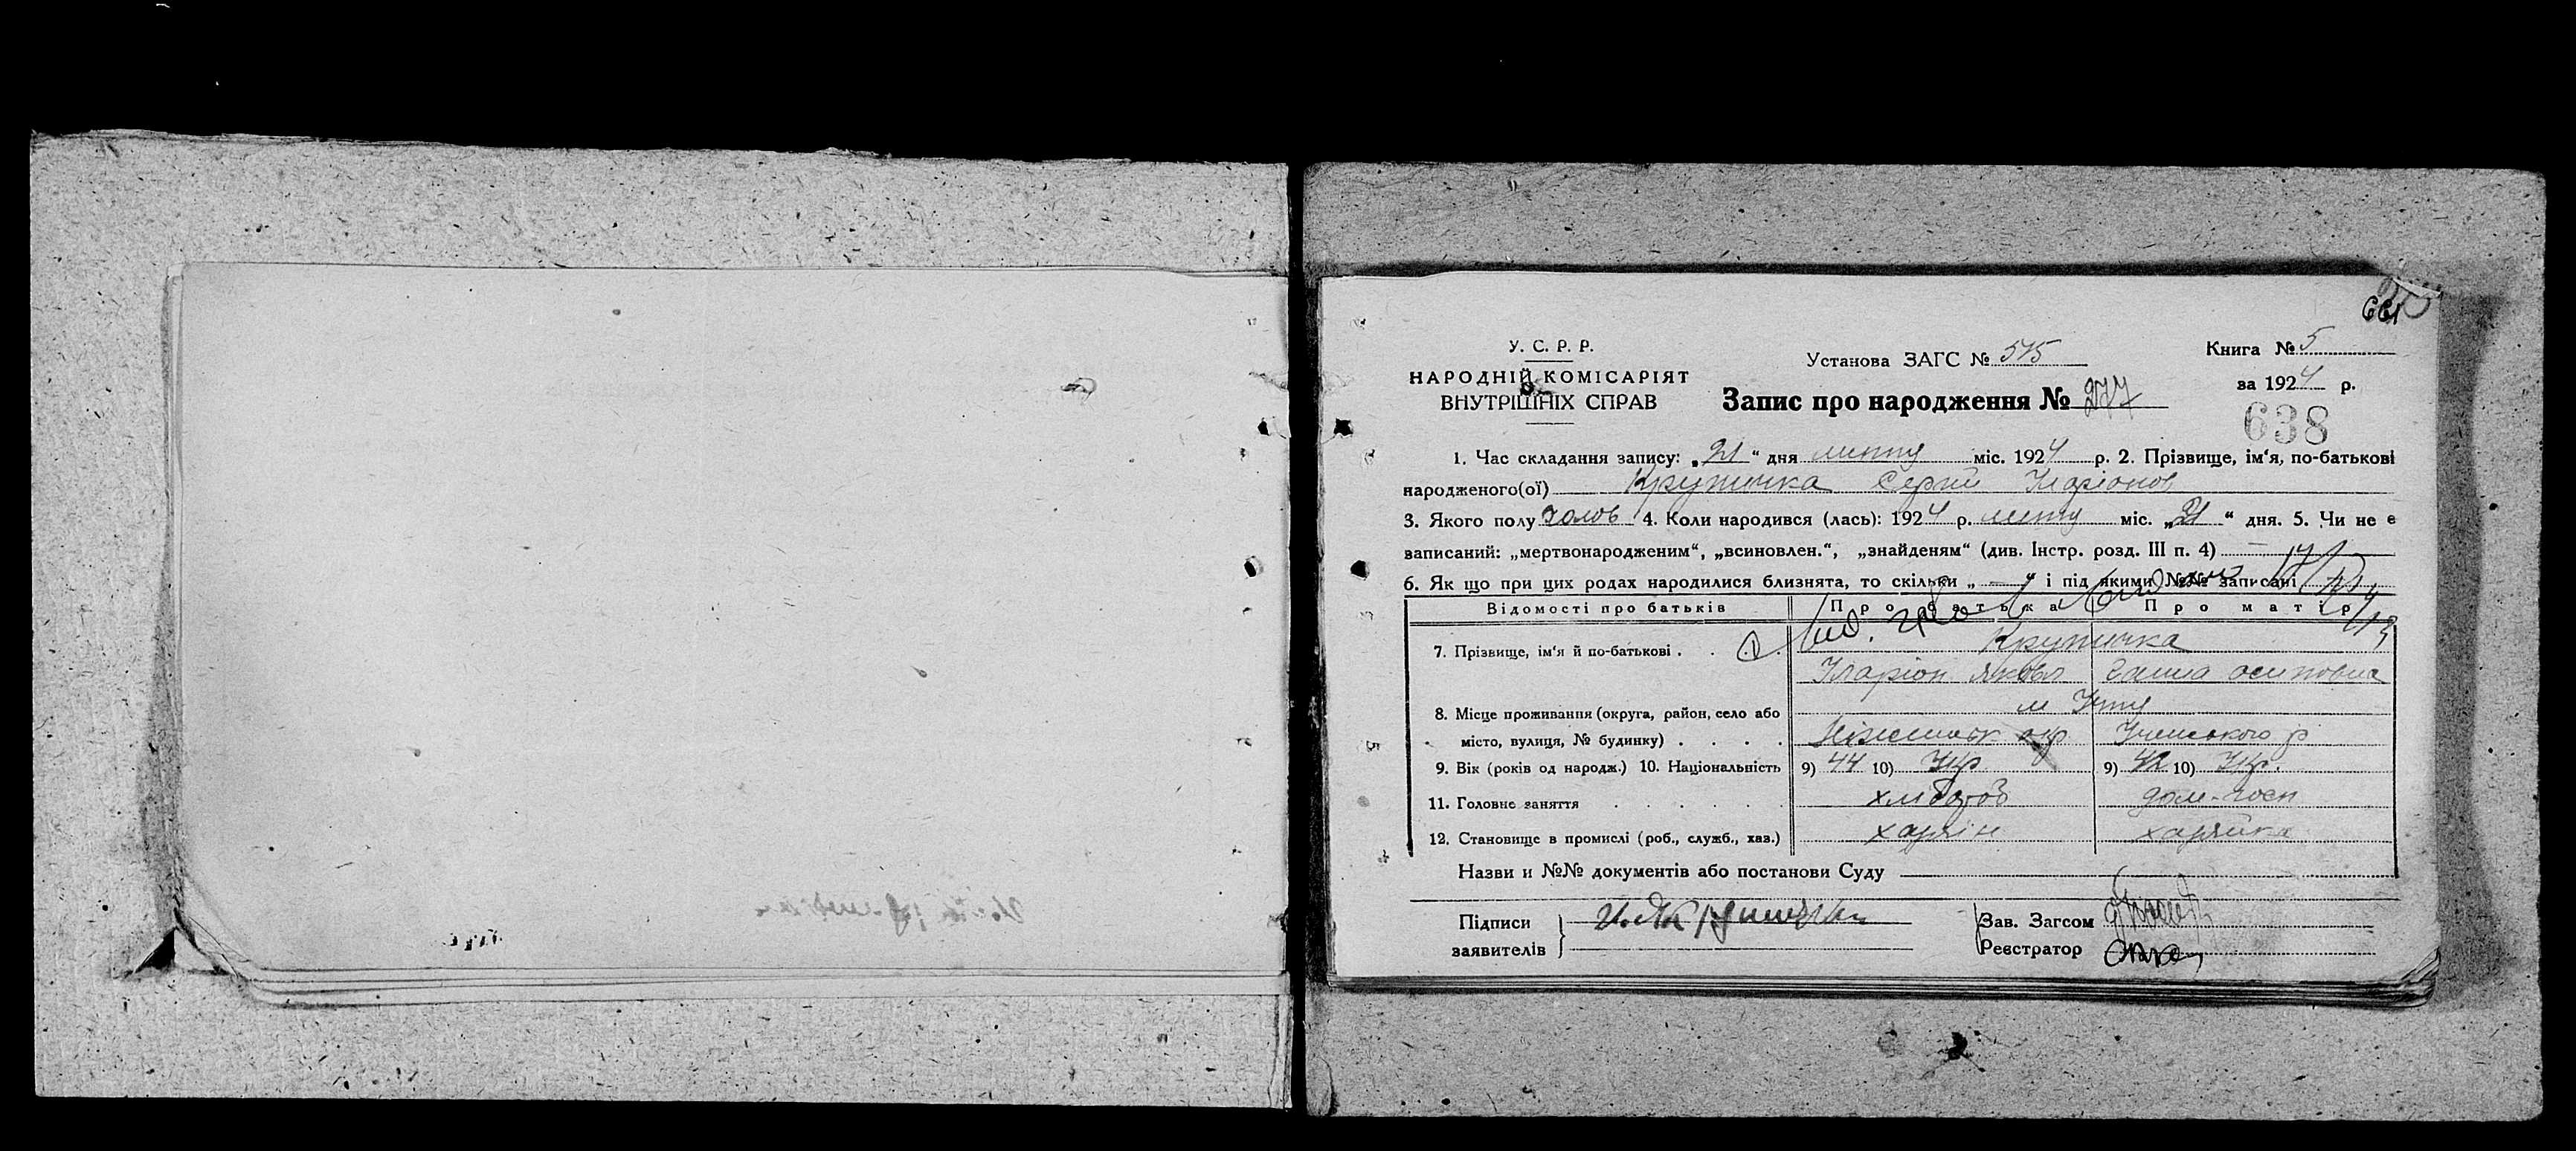 661
У. С. Р. Р.
НАРОДНІЙ КОМІСАРІЯТ
ВНУТРІШНІХ СПРАВ
Установа ЗАГС № 575
Книга № 5
за 1924 р.
Запис про народження № 277
638
1. Час складання запису: „21“ дня люту міс. 1924 р. 2. Прізвище, ім‘я, по-батькові
народженого(ої) Крупичка Сергій Іларіонов
3. Якого полу чолов 4. Коли народився (лась): 1924 р. люту міс. „21“ дня. 5. Чи не є
записаний: „мертвонародженим“, „всиновлен.“, „знайденям“ (див. Інстр. розд. III п. 4)
6. Як що при цих родах народилися близнята, то скільки „ — “ і під якими №№ записані
Відомості про батьків Про батька Про матір
7. Прізвище, ім‘я й по-батькові . . . Крупичка
Іларіон Яковл Ганна Осиповна
8. Місце проживання (округа, район, село або м Ічня
місто, вулиця, № будинку) . . . . Ніженськ окр Ічнянського р
9. Вік (років од народж.) 10. Національність 9) 44 10) Укр 9) 42 10) Укр.
11. Головне заняття . . . . . . хлібороб дом-госп
12. Становище в промислі (роб., служб., хаз.) хазяїн хазяйка
Назви и №№ документів або постанови Суду
Підписи
заявителів
Зав. Загсом
Реєстратор